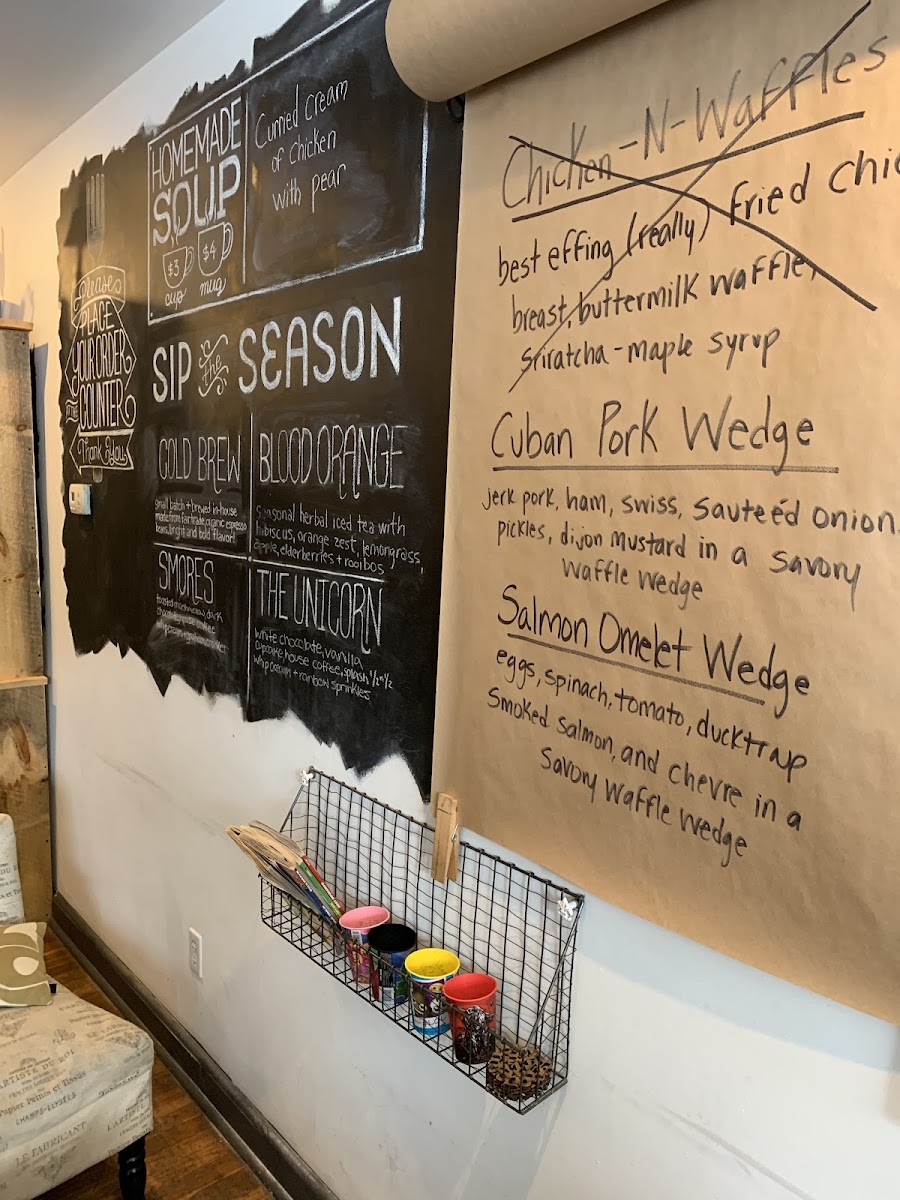 please
PLACE
YOUR ORDER
AT THE
COUNTER
Thank You
HOMEMADE
SOUP
$3
cup
$4
mug
Curried cream
of chicken
with pear
SIP the SEASON
COLD BREW
small batch + brewed in-house
made from fair trade, organic espresso
beans, bright and bold flavor!
BLOOD ORANGE
seasonal herbal iced tea with
hibiscus, orange zest, lemongrass,
apple, elderberries + rooibos
SMORES
toasted marshmallow, dark
THE UNICORN
white chocolate, vanilla
cupcake, house coffee, splash 1/2 n 1/2
whip cream + rainbow sprinkles
Chicken-N-Waffles
best effing (really) fried chic
breast, buttermilk waffle,
sriratcha-maple syrup
Cuban Pork Wedge
jerk pork, ham, swiss, sauteéd onion
pickles, dijon mustard in a savory
waffle wedge
Salmon Omelet Wedge
eggs, spinach, tomato, ducktrap
smoked salmon, and chevre in a
savory waffle wedge
ARTISTE DU ROI
Papier Peints et Tissus
CHAMPS-ELYSÉES
LE FABRICANT